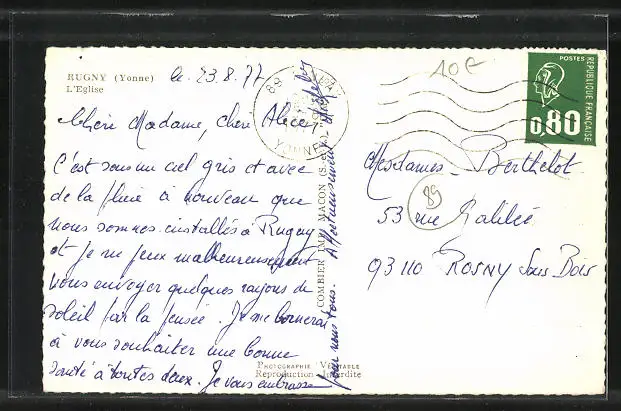 RUGNY (Yonne) le 23.8.77
L'Eglise
Chère Madame, chère Alice,
C'est sous un ciel gris et avec
de la pluie à nouveau que
nous sommes installés à Rugny
et je ne peux malheureusement
vous envoyer quelques rayons de
soleil par la pensée. Je me bornerai
à vous souhaiter une bonne
santé à toutes deux. Je vous embrasse
pour nous tous. Affectueusement
COMBIER IMP. MACON (S.
PHOTOGRAPHIE VÉRITABLE
Reproduction Interdite
89
YONNE
10€
POSTES
REPUBLIQUE FRANÇAISE
0,80
Mesdames Berthelot
89
53 rue Galilée
93110 ROSNY Sous Bois